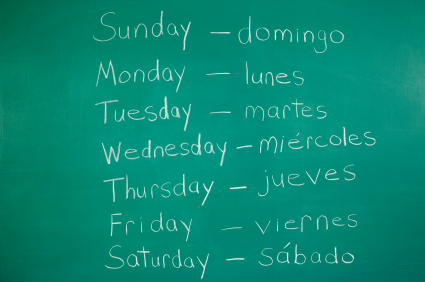 Sunday – domingo
Monday – lunes
Tuesday – martes
Wednesday – miércoles
Thursday – jueves
Friday – viernes
Saturday – sábado